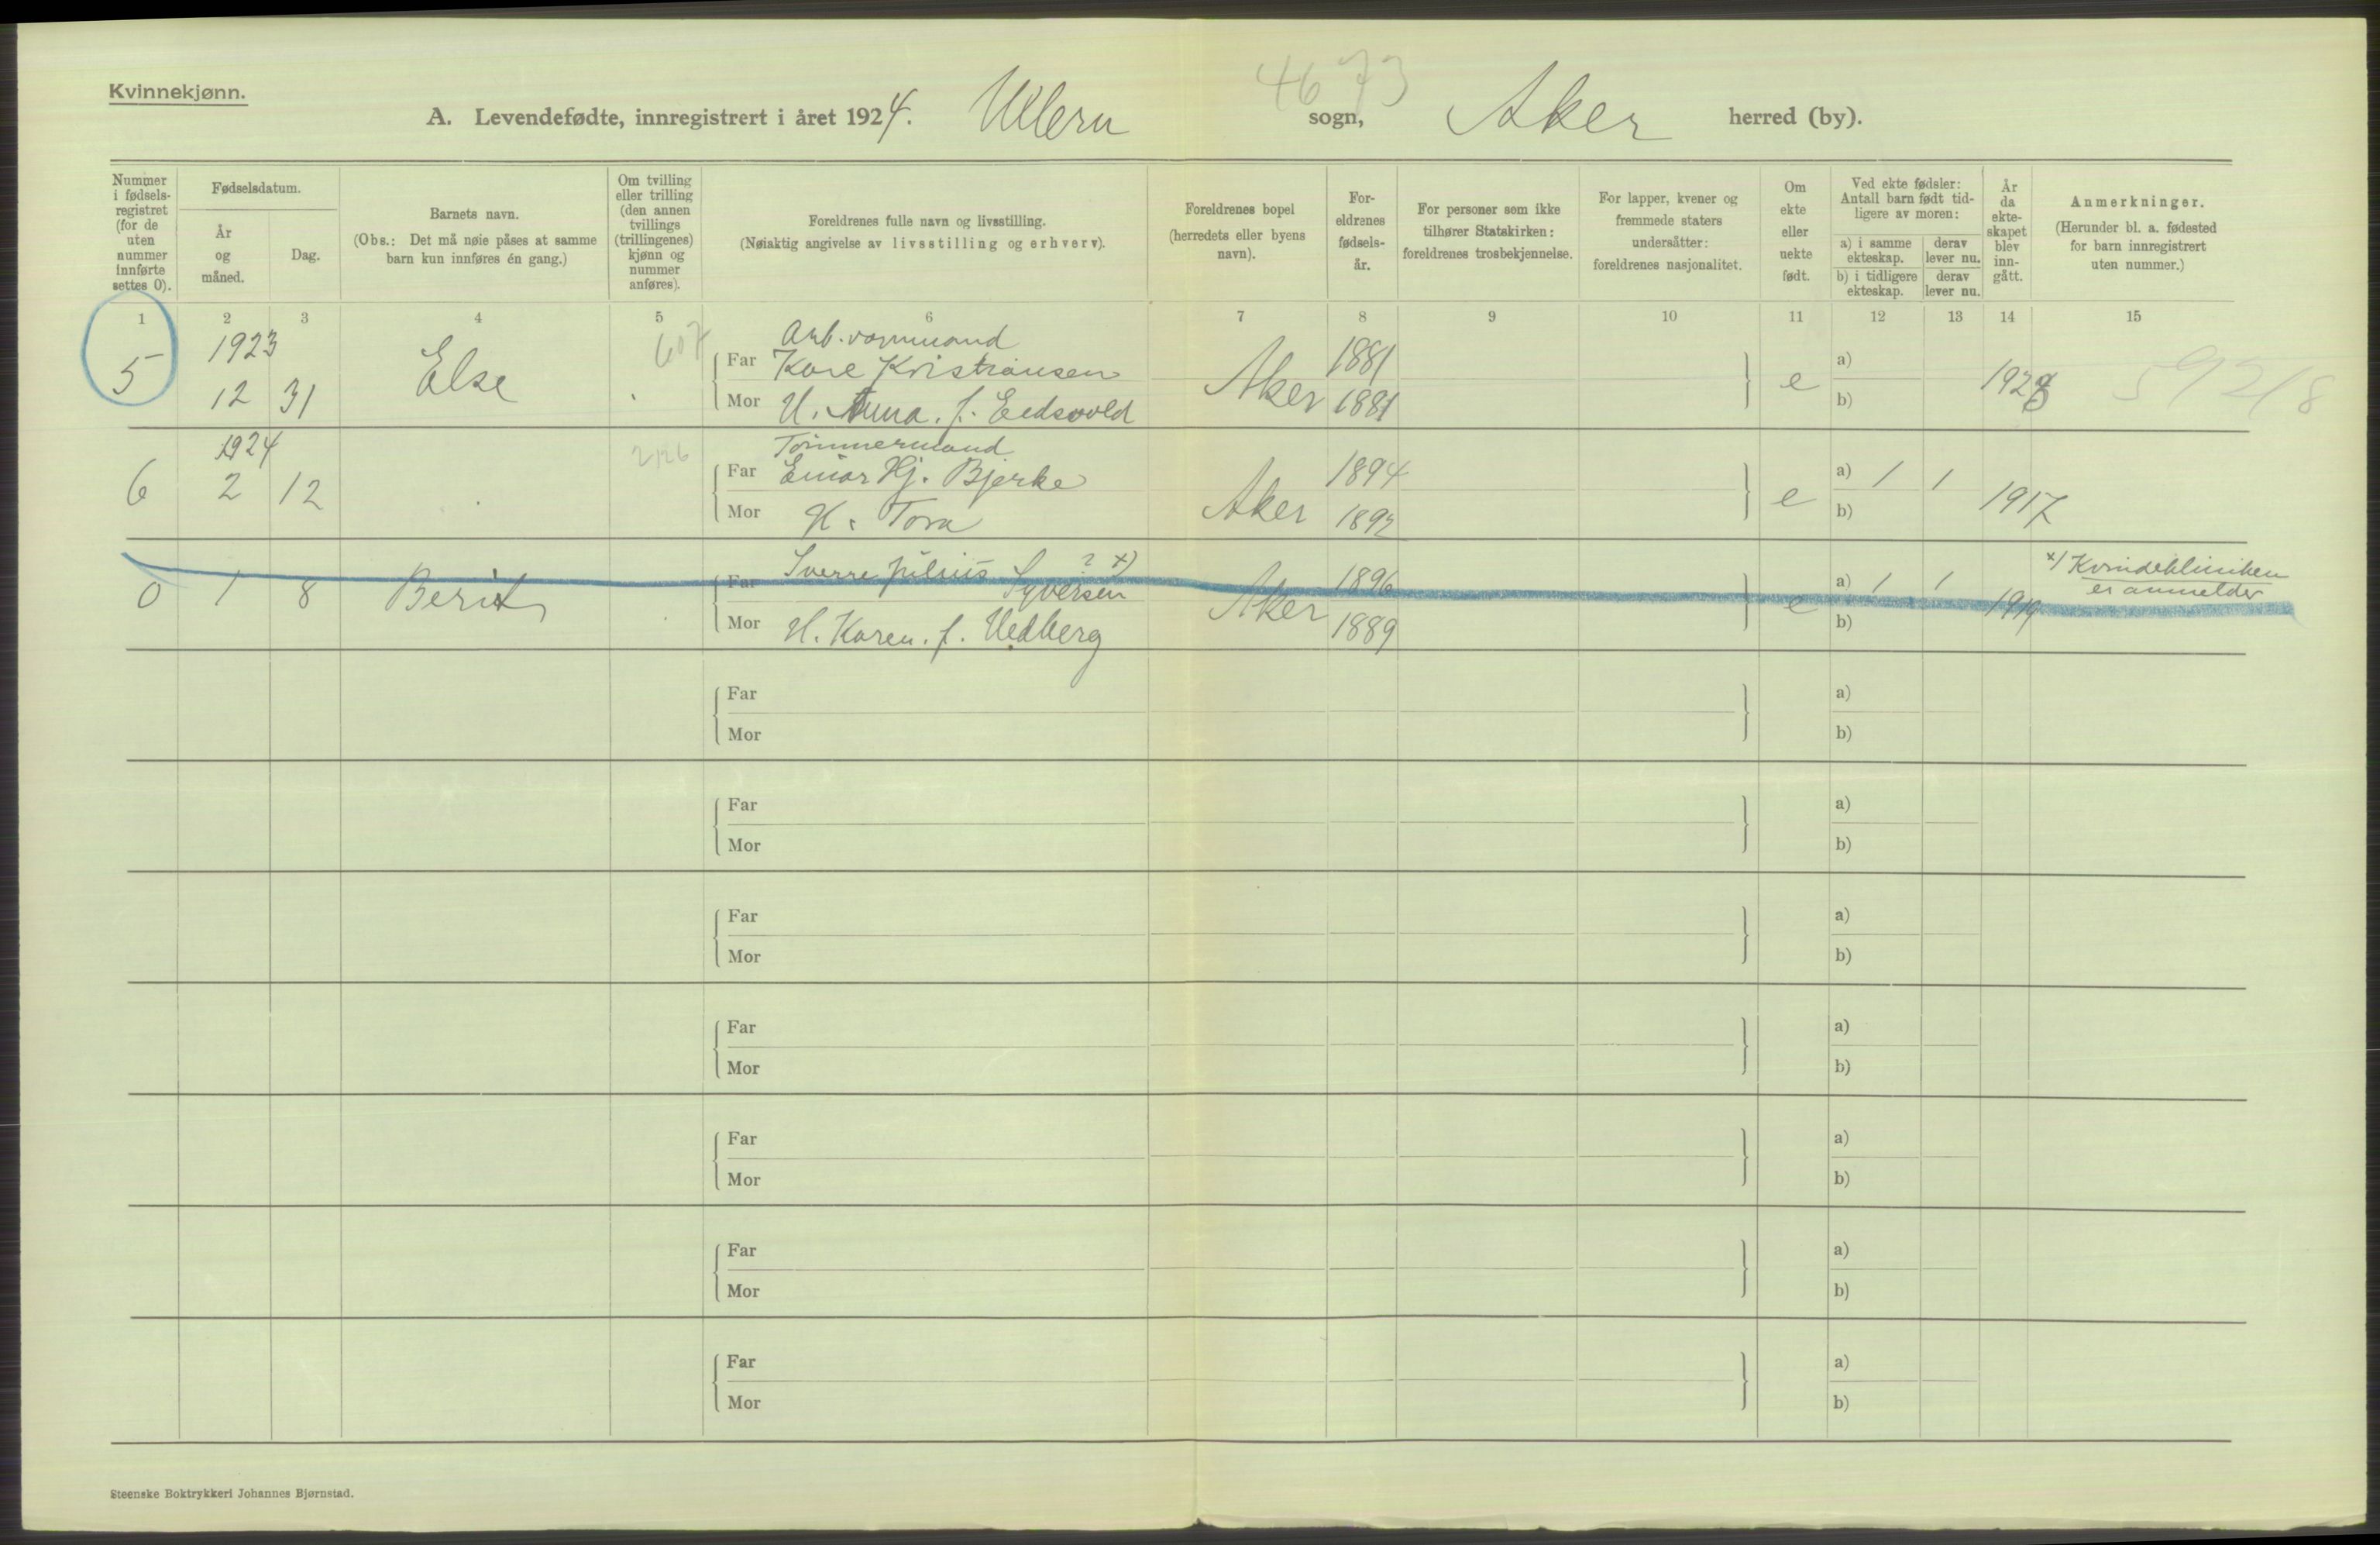 Kvinnekjønn.
4673
A. Levendefødte, innregistrert i året 1924. Ullern sogn, Aker herred (by).
Nummer i fødsels-registret (for de uten nummer innførte settes 0).
Fødselsdatum.
År og måned.
Dag.
Barnets navn.
(Obs.: Det må nøie påses at samme barn kun innføres én gang.)
Om tvilling eller trilling (den annen tvillings (trillingenes) kjønn og nummer anføres).
Foreldrenes fulle navn og livsstilling.
(Nøiaktig angivelse av livsstilling og erhverv).
Foreldrenes bopel (herredets eller byens navn).
For-eldrenes fødsels-år.
For personer som ikke tilhører Statskirken: foreldrenes trosbekjennelse.
For lapper, kvener og fremmede staters undersåtter: foreldrenes nasjonalitet.
Om ekte eller uekte født.
Ved ekte fødsler: Antall barn født tid-ligere av moren:
a) i samme ekteskap.
derav lever nu.
b) i tidligere ekteskap.
derav lever nu.
År da ekte-skapet blev inn-gått.
Anmerkninger.
(Herunder bl. a. fødested for barn innregistrert uten nummer.)
1 2 3 4 5 6 7 8 9 10 11 12 13 14 15
1923
Arb. formand
5 12 31 Else 607
Far Kare Kristiansen 1881 a)
Mor H. Anna f. Eedsvold Aker 1881 e b) 1923
59218
1924
Tømmermand
6 2 12 2126
Far Einar Hj. Bjerke 1894 a) 1 1
Mor H. Tora Aker 1892 e b) 1917
0 1 8 Berit
Far Sverre Julius Syversen ? x) 1896 a) 1 1
Mor H. Karen f. Vedberg Aker 1889 e b) 1919
x) Kvindeklinikken
er anmelder
Far a)
Mor b)
Far a)
Mor b)
Far a)
Mor b)
Far a)
Mor b)
Far a)
Mor b)
Far a)
Mor b)
Far a)
Mor b)
Steenske Boktrykkeri Johannes Bjørnstad.